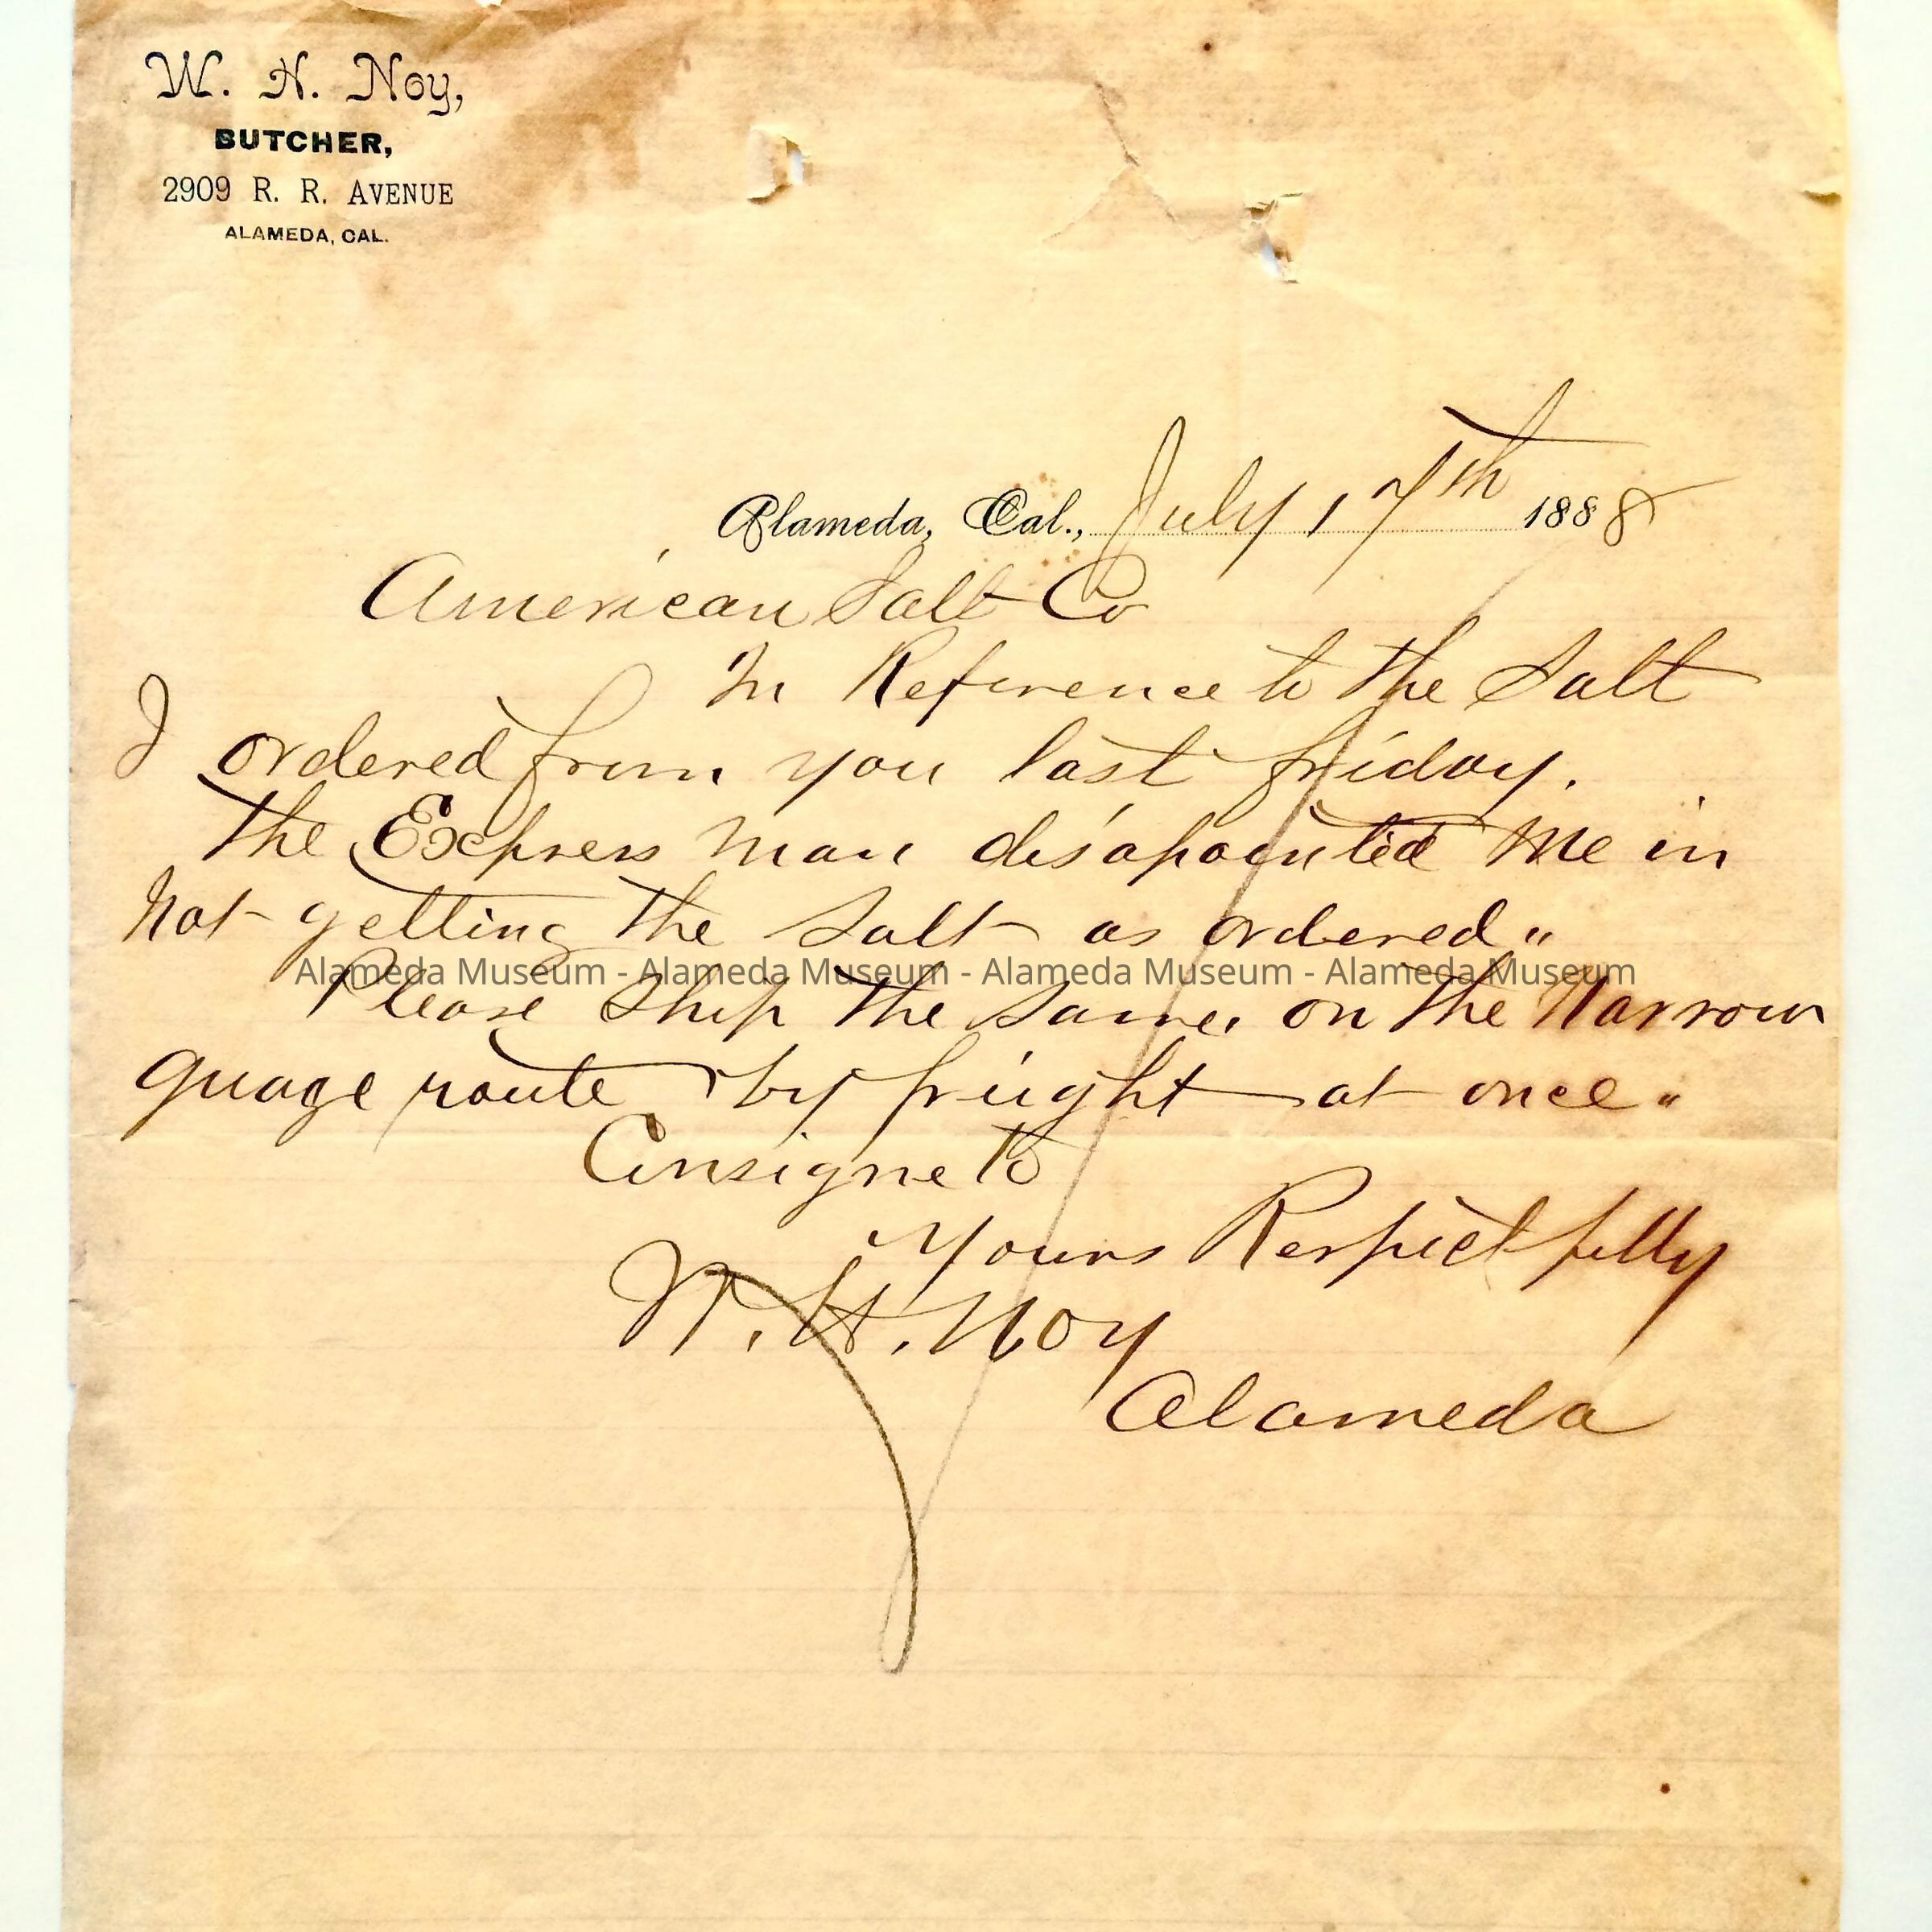 W. H. Noy,
BUTCHER,
2909 R. R. AVENUE
ALAMEDA, CAL.
Alameda, Cal., July 17th 1888
American Salt Co
In Reference to the Salt
I ordered from you last friday.
the Express man disapointed Me in
Not getting the Salt as ordered "
Alameda Museum - Alameda Museum - Alameda Museum - Alameda Museum
Please Ship the Same, on the Narrow
guage route by frieght at once "
Consigne to
Yours Respectfully
W. H. Noy
Alameda